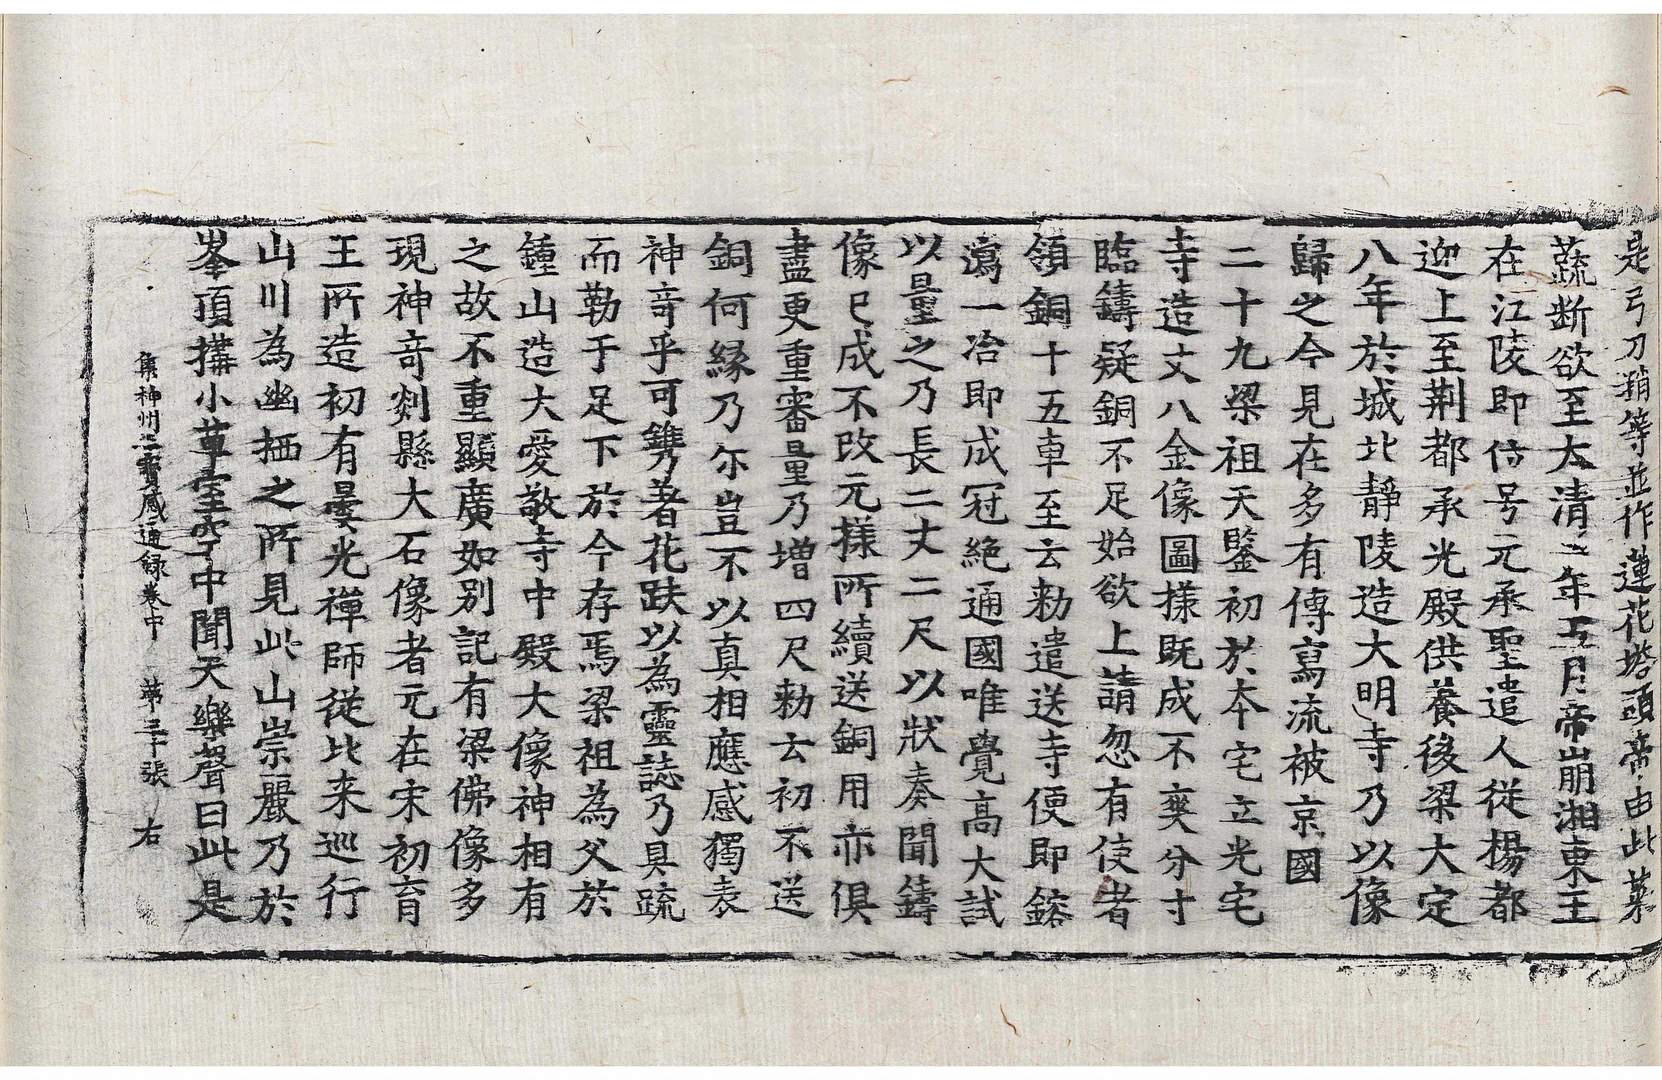 是弓刀矟等並作蓮花塔頭帝由此菜
蔬断欲至大清三年五月帝崩湘東王
在江陵即位号元承聖遣人従楊都
迎上至荆都承光殿供養後梁大定
八年於城北靜陵造大明寺乃以像
歸之今見在多有傳寫流被京國
二十九梁祖天鑒初於本宅立光宅
寺造丈八金像圖様既成不爽分寸
臨鑄疑銅不足始欲上請忽有使者
領銅十五車至云勑遣送寺便即鎔
瀉一冶即成冠絶通國唯覺高大試
以量之乃長二丈二尺以狀奏聞鑄
像已成不改元様所續送銅用亦俱
盡更重審量乃增四尺勑云初不送
銅何縁乃尓豈不以真相應感獨表
神竒乎可鐫著花趺以為靈誌乃具疏
而勒于足下於今存焉梁祖為父於
鍾山造大愛敬寺中殿大像神相有
之故不重顯廣如別記有梁佛像多
現神竒剡縣大石像者元在宋初育
王所造初有曇光禪師従北来巡行
山川為幽栖之所見此山崇麗乃於
峯頂搆小草室空中聞天樂聲曰此是
集神州三寳感通録卷中 苐三十張 右